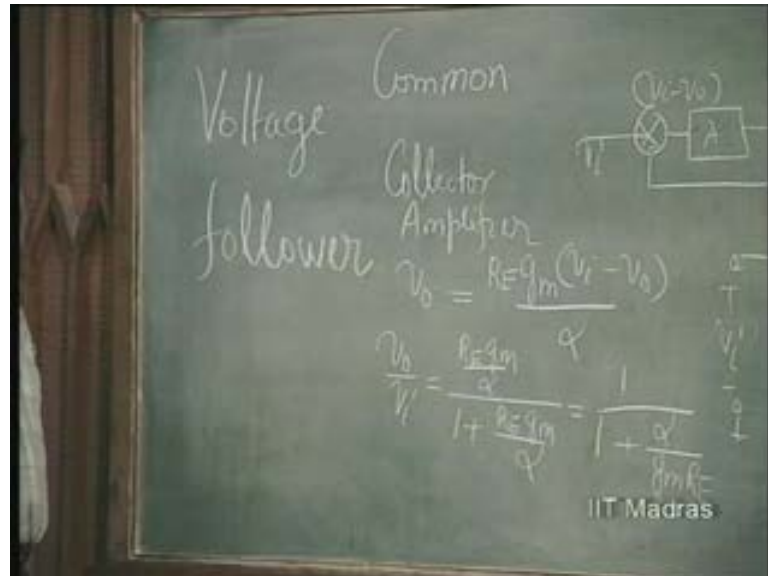 Voltage
follower
Common
Collector
Amplifier
V₀ = R_E g_m (V_i - V₀) / α
V₀ / V_i = (R_E g_m / α) / (1 + R_E g_m / α) = 1 / (1 + α / (g_m R_E))
(V_i - V₀)
V_i
λ
+
V_i
-
IIT Madras